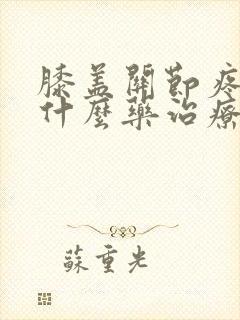 膝盖關節疼
什麼藥治療
蘇重光